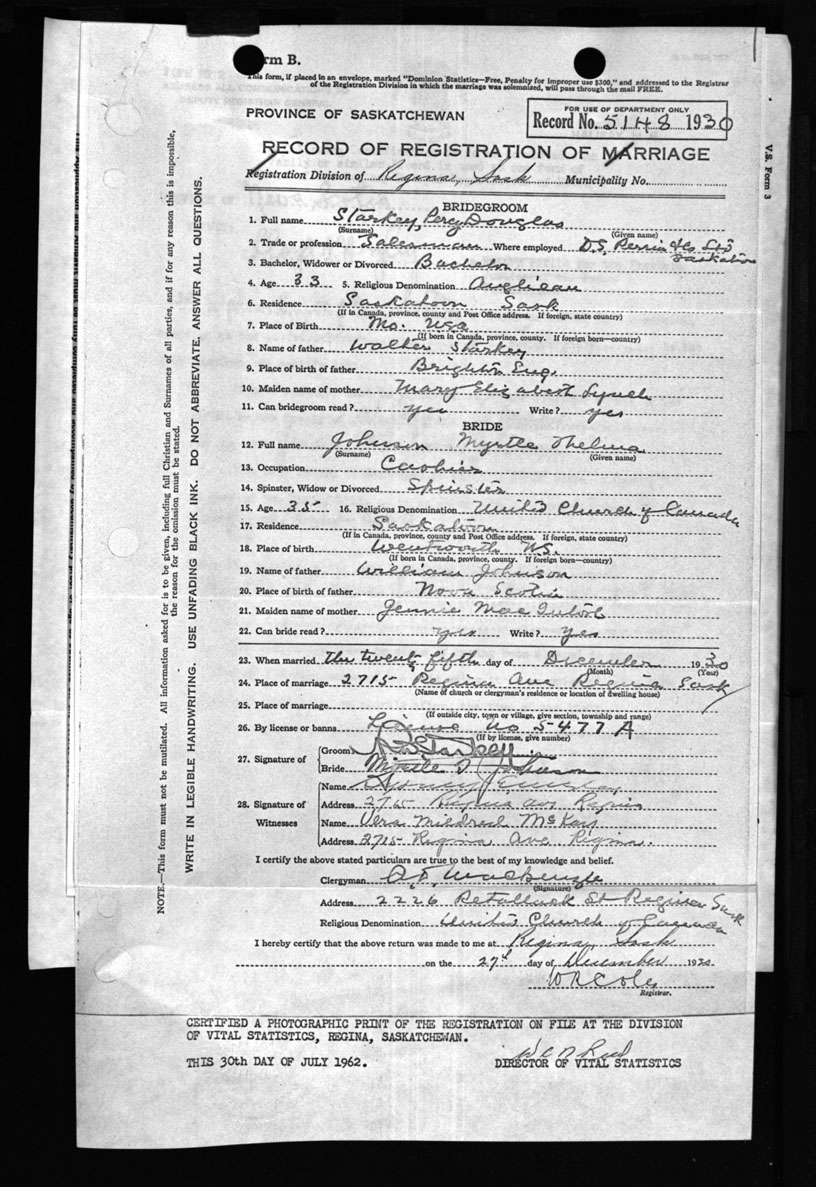 Form B.
This form, if placed in an envelope, marked "Dominion Statistics—Free, Penalty for improper use $300," and addressed to the Registrar
of the Registration Division in which the marriage was solemnized, will pass through the mail FREE.
PROVINCE OF SASKATCHEWAN
FOR USE OF DEPARTMENT ONLY
Record No. 5148 1930
RECORD OF REGISTRATION OF MARRIAGE
Registration Division of Regina, Sask Municipality No.
V.S. Form 3
NOTE.—This form must not be mutilated. All information asked for is to be given, including full Christian and Surnames of all parties, and if for any reason this is impossible,
the reason for the omission must be stated.
WRITE IN LEGIBLE HANDWRITING. USE UNFADING BLACK INK. DO NOT ABBREVIATE. ANSWER ALL QUESTIONS.
BRIDEGROOM
1. Full name Starkey, Percy Douglas
(Surname) (Given name)
2. Trade or profession Salesman Where employed D.S. Perrin & Co Ltd
Saskatoon
3. Bachelor, Widower or Divorced Bachelor
4. Age 33 5. Religious Denomination Anglican
6. Residence Saskatoon Sask
(If in Canada, province, county and Post Office address. If foreign, state country)
7. Place of Birth Mo. Usa
(If born in Canada, province, county. If foreign born—country)
8. Name of father Walter Starkey
9. Place of birth of father Brighton Eng.
10. Maiden name of mother Mary Elizabeth Lynch
11. Can bridegroom read? yes Write? yes
BRIDE
12. Full name Johnson Myrtle Thelma
(Surname) (Given name)
13. Occupation Cashier
14. Spinster, Widow or Divorced Spinster
15. Age 35 16. Religious Denomination United Church of Canada
17. Residence Saskatoon
(If in Canada, province, county and Post Office address. If foreign, state country)
18. Place of birth Wentworth NS.
(If born in Canada, province, county. If foreign born—country)
19. Name of father William Johnson
20. Place of birth of father Nova Scotia
21. Maiden name of mother Jennie Mac
22. Can bride read? yes Write? yes
23. When married the twenty fifth day of December 1930
(Month) (Year)
24. Place of marriage 2715 Regina Ave Regina Sask
(Name of church or clergyman's residence or location of dwelling house)
25. Place of marriage
(If outside city, town or village, give section, township and range)
26. By license or banns License No 5477 A
(If by license, give number)
27. Signature of
Groom P D Starkey
Bride Myrtle T Johnson
28. Signature of
Witnesses
Name
Address 2715 Regina Ave Regina
Name Vera Mildred McKay
Address 2715 Regina Ave Regina.
I certify the above stated particulars are true to the best of my knowledge and belief.
Clergyman Mackenzie
(Signature)
Address 2226 Retallack St Regina Sask
Religious Denomination United Church of Canada
I hereby certify that the above return was made to me at Regina, Sask
on the 27th day of December 1930
W R Cole
Registrar.
CERTIFIED A PHOTOGRAPHIC PRINT OF THE REGISTRATION ON FILE AT THE DIVISION
OF VITAL STATISTICS, REGINA, SASKATCHEWAN.
THIS 30th DAY OF JULY 1962.
DIRECTOR OF VITAL STATISTICS